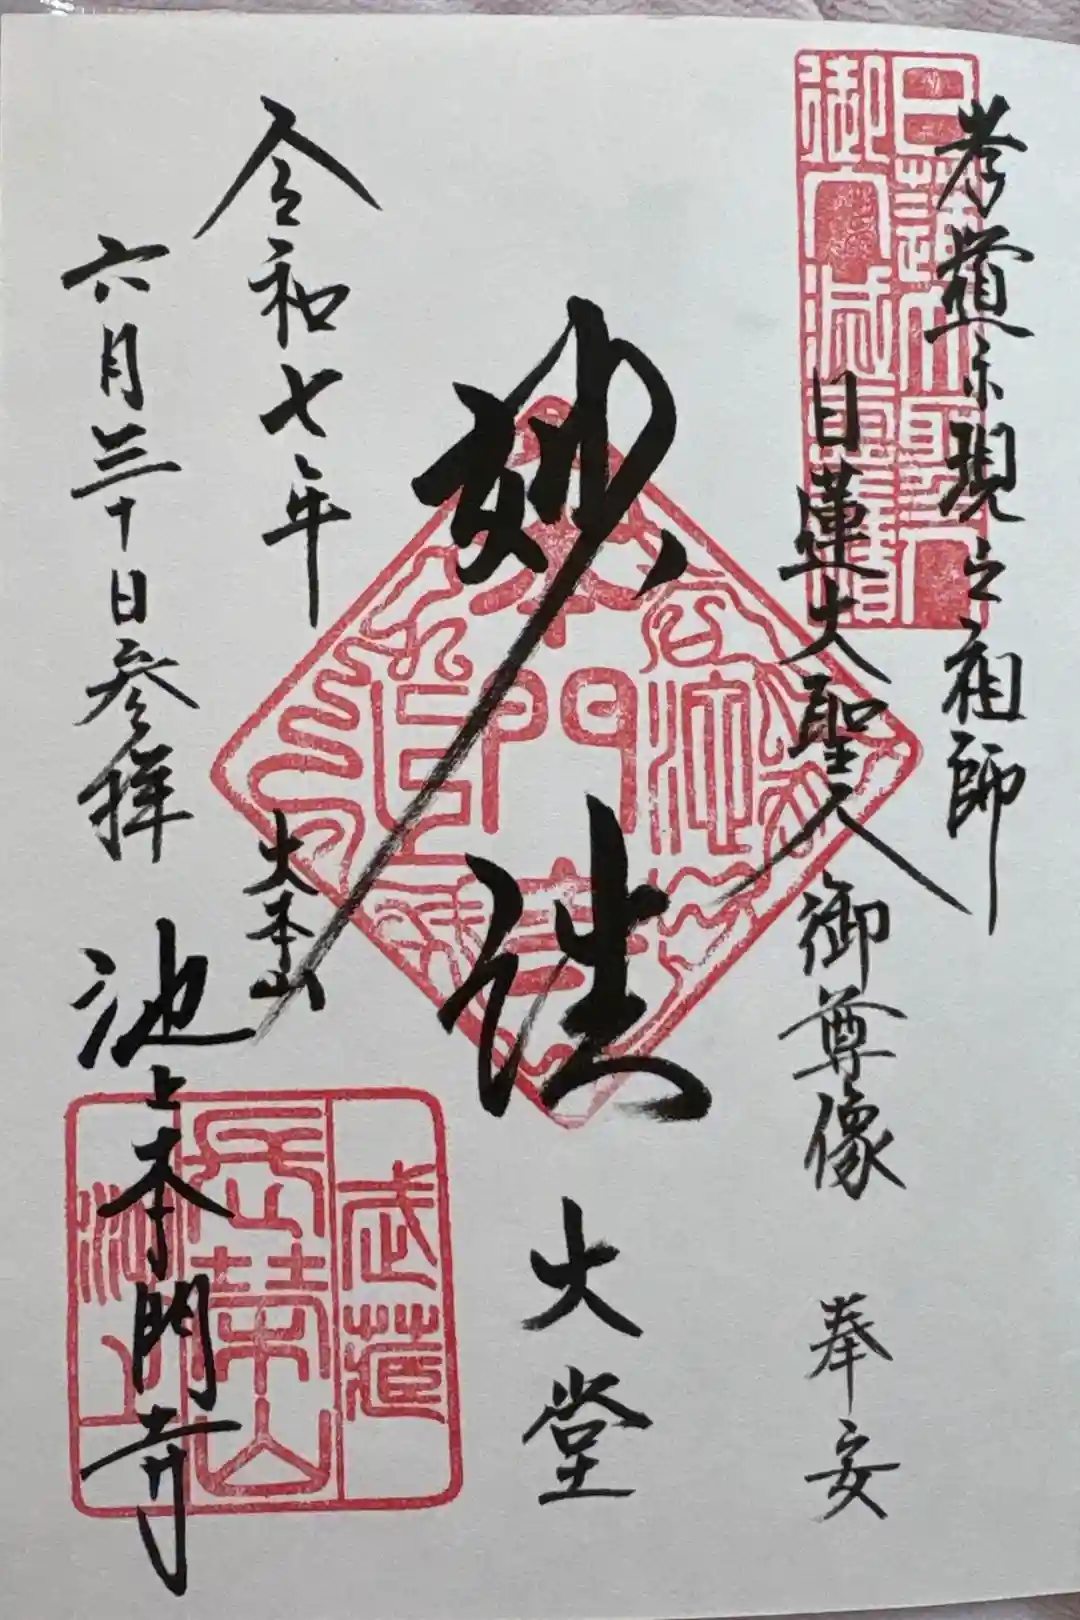 孝道示現之祖師
日蓮大聖人御尊像 奉安
日蓮大聖人
妙法
大堂
令和七年
六月三十日参拝
大本山
池上本門寺
武蔵
長榮山
池上